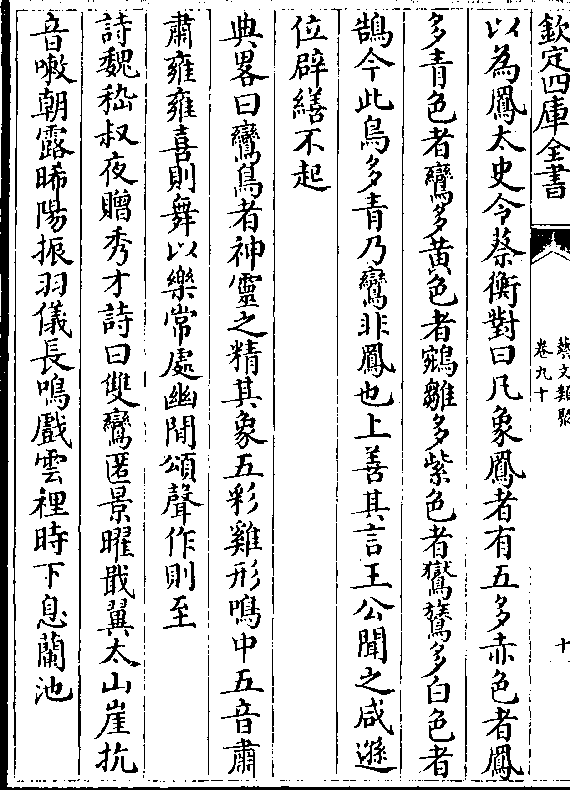 欽定四庫全書
藝文類聚
卷九十
十
以為鳳太史令蔡衡對曰凡象鳳者有五多赤色者鳳
多青色者鸞多黃色者鵷雛多紫色者鸑鷟多白色者
鵠今此鳥多青乃鸞非鳳也上善其言王公聞之咸遜
位辟繕不起
典畧曰鸞鳥者神靈之精其象五彩雞形鳴中五音肅
肅雍雍喜則舞以樂常處幽閒頌聲作則至
詩魏嵇叔夜贈秀才詩曰雙鸞匿景曜戢翼太山崖抗
音嗽朝露晞陽振羽儀長鳴戲雲裡時下息蘭池